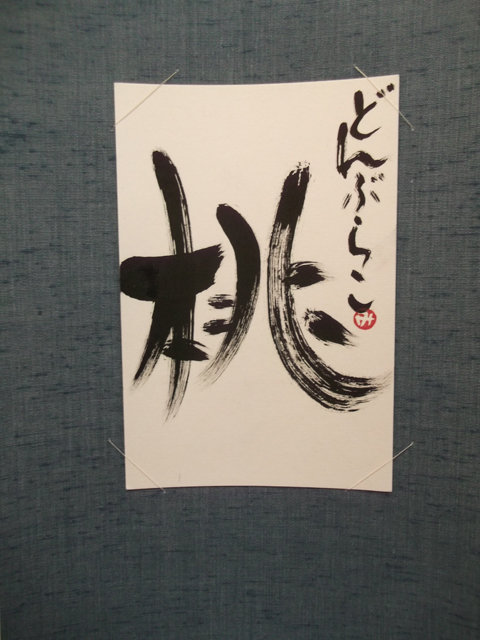 どんぶらこ
み
桃